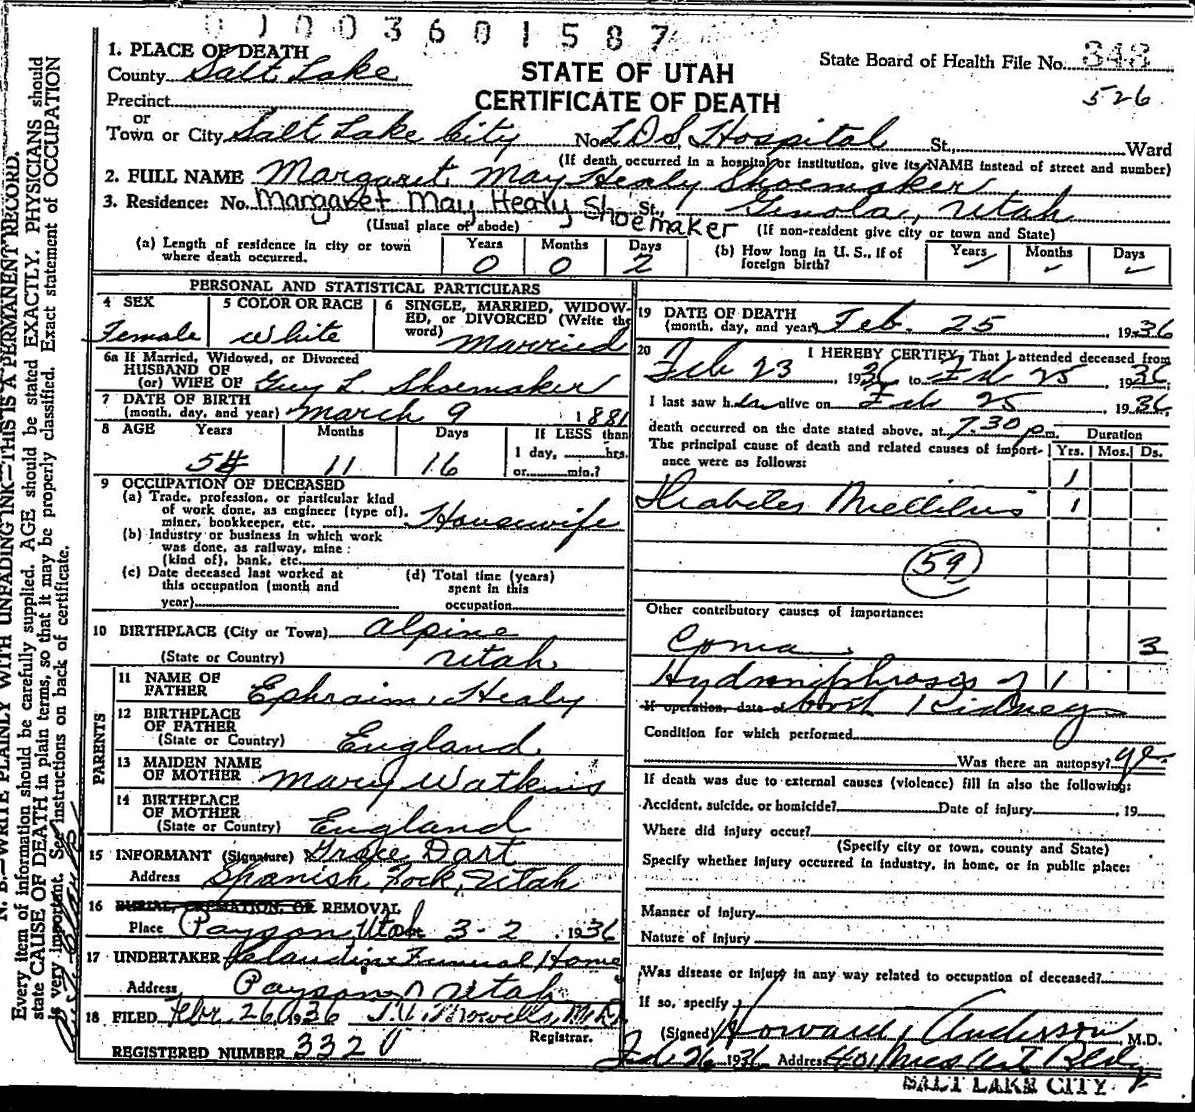 0 1 0 0 3 6 0 1 5 8 7
STATE OF UTAH
CERTIFICATE OF DEATH
State Board of Health File No. 343
526
1. PLACE OF DEATH
County Salt Lake
Precinct
or
Town or City Salt Lake City No. L.D.S. Hospital St., Ward
(If death occurred in a hospital or institution, give its NAME instead of street and number)
2. FULL NAME Margaret May Healy Shoemaker
3. Residence: No. Margaret May Healy Shoemaker St., Genola, Utah
(Usual place of abode) (If non-resident give city or town and State)
(a) Length of residence in city or town where death occurred. Years 0 Months 0 Days 2
(b) How long in U. S., if of foreign birth? Years Months Days
PERSONAL AND STATISTICAL PARTICULARS
4 SEX Female
5 COLOR OR RACE White
6 SINGLE, MARRIED, WIDOWED, or DIVORCED (Write the word) Married
6a If Married, Widowed, or Divorced
HUSBAND OF
(or) WIFE OF Guy L. Shoemaker
7 DATE OF BIRTH
(month, day, and year) March 9 1881
8 AGE Years 54 Months 11 Days 16 If LESS than 1 day, hrs. or min.?
9 OCCUPATION OF DECEASED
(a) Trade, profession, or particular kind
of work done, as engineer (type of),
miner, bookkeeper, etc. Housewife
(b) Industry or business in which work
was done, as railway, mine
(kind of), bank, etc.
(c) Date deceased last worked at
this occupation (month and
year)
(d) Total time (years)
spent in this
occupation
10 BIRTHPLACE (City or Town) Alpine
(State or Country) Utah
PARENTS
11 NAME OF FATHER Ephraim Healy
12 BIRTHPLACE OF FATHER (State or Country) England
13 MAIDEN NAME OF MOTHER Mary Watkins
14 BIRTHPLACE OF MOTHER (State or Country) England
15 INFORMANT (Signature) Grace Dart
Address Spanish Fork, Utah
16 BURIAL, CREMATION, OR REMOVAL
Place Payson Utah 3-2 1936
17 UNDERTAKER Funeral Home
Address Payson Utah
18 FILED Febr. 26, 1936 M.D.
Registrar.
REGISTERED NUMBER 332
19 DATE OF DEATH
(month, day, and year) Feb. 25 1936
20 I HEREBY CERTIFY, That I attended deceased from
Feb 23, 1936 to Feb 25 1936
I last saw her alive on Feb 25 1936
death occurred on the date stated above, at 7.30 p.m. Duration
The principal cause of death and related causes of importance were as follows: Yrs. Mos. Ds.
1
Diabetes Mellitus 1
59
Other contributory causes of importance:
Coma 3
Hydronephrosis of 1
If operation, date of both Kidneys
Condition for which performed
Was there an autopsy? yes
If death was due to external causes (violence) fill in also the following:
Accident, suicide, or homicide? Date of injury , 19
Where did injury occur?
(Specify city or town, county and State)
Specify whether injury occurred in industry, in home, or in public place:
Manner of injury
Nature of injury
Was disease or injury in any way related to occupation of deceased?
If so, specify
(Signed) Howard Anderson, M.D.
Feb 26 1936 Address 401 Med Art Bldg
SALT LAKE CITY
N. B.—WRITE PLAINLY WITH UNFADING INK—THIS IS A PERMANENT RECORD.
Every item of information should be carefully supplied. AGE should be stated EXACTLY. PHYSICIANS should
state CAUSE OF DEATH in plain terms, so that it may be properly classified. Exact statement of OCCUPATION
is very important. See instructions on back of certificate.